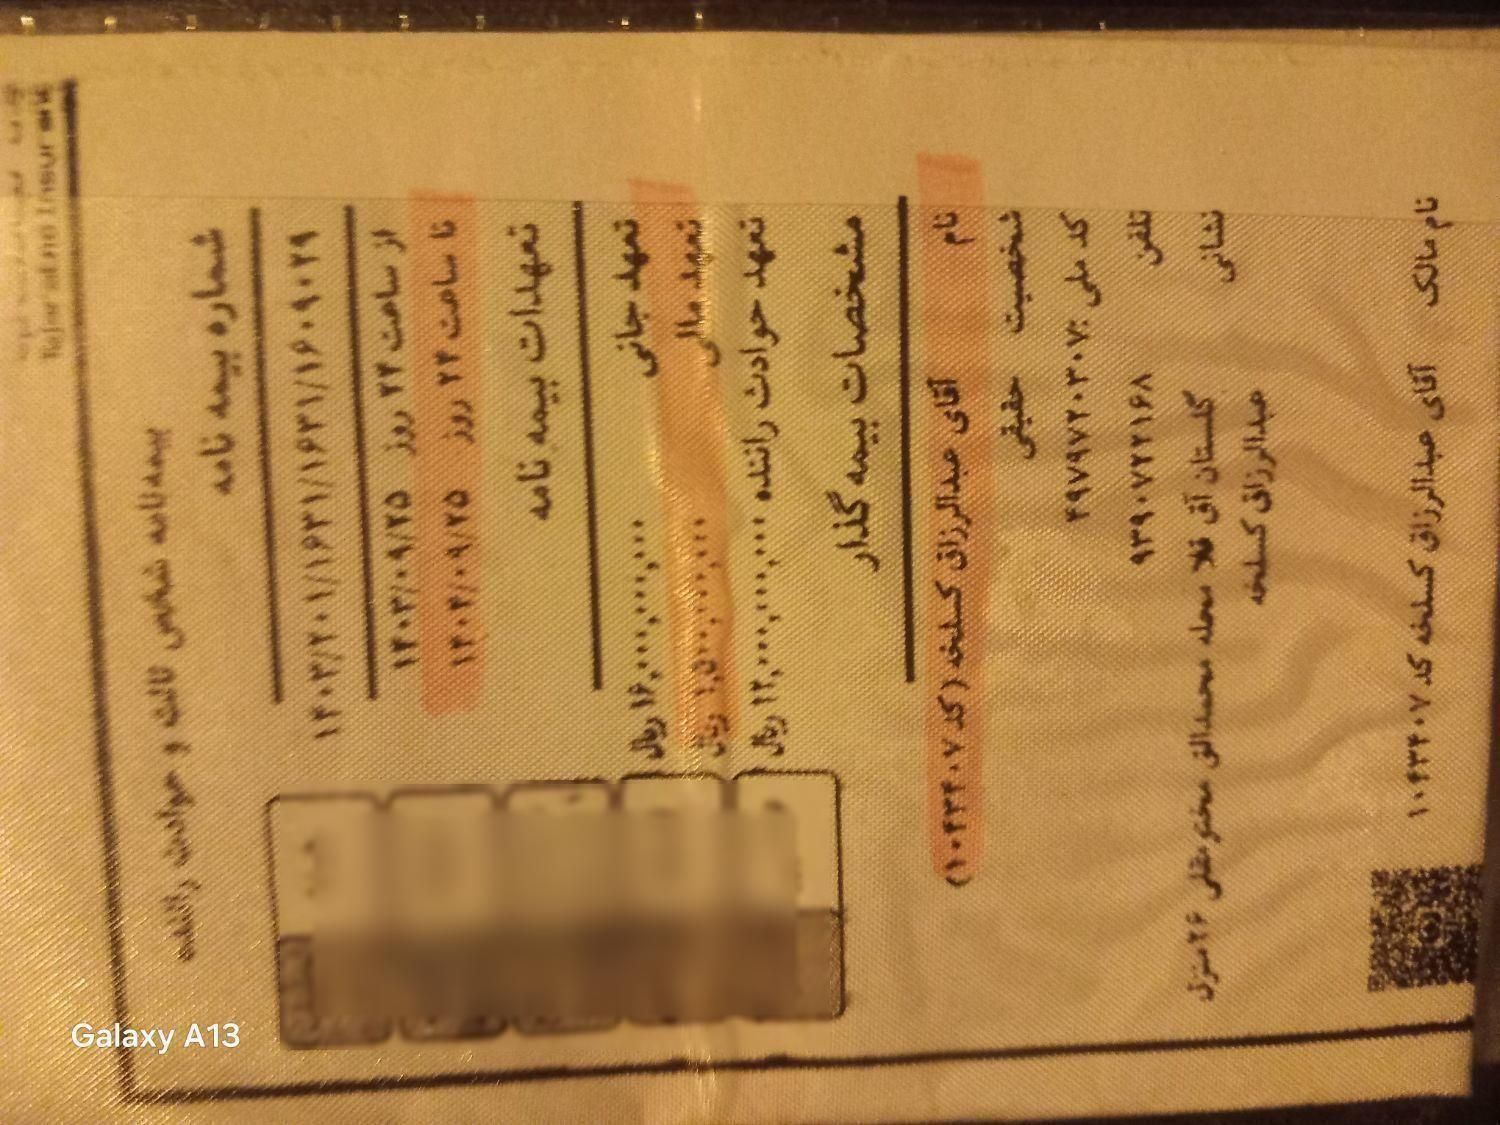 Tejaratno Insurance
بیمه‌نامه شخص ثالث و حوادث راننده
شماره بیمه نامه
۱۴۰۳/۲۰۰۱/۱۶۳۱/۱۶۳۱/۱۶۰۹۰۲۹
از ساعت ۲۴ روز ۱۴۰۳/۰۹/۲۵
تا ساعت ۲۴ روز ۱۴۰۴/۰۹/۲۵
تعهدات بیمه نامه
تعهد جانی ۱۶,۰۰۰,۰۰۰,۰۰۰ ریال
تعهد مالی ۱,۵۰۰,۰۰۰,۰۰۰ ریال
تعهد حوادث راننده ۱۲,۰۰۰,۰۰۰,۰۰۰ ریال
مشخصات بیمه گذار
نام آقای عبدالرزاق کسلخه (کد ۱۰۴۳۴۰۷)
شخصیت حقیقی
کد ملی: ۴۹۷۹۷۲۰۳۰۷
تلفن ۹۳۹۰۷۲۲۱۶۸
نشانی گلستان آق قلا محله محمدالق مختومقلی ۲۶ منزل
عبدالرزاق کسلخه
نام مالک آقای عبدالرزاق کسلخه کد ۱۰۴۳۴۰۷
Galaxy A13